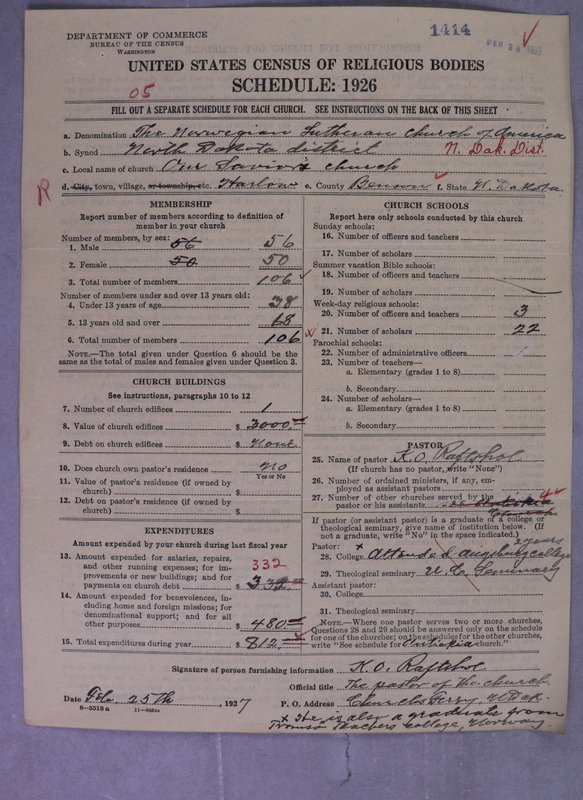 1414
DEPARTMENT OF COMMERCE
BUREAU OF THE CENSUS
WASHINGTON
UNITED STATES CENSUS OF RELIGIOUS BODIES
SCHEDULE: 1926
05
FILL OUT A SEPARATE SCHEDULE FOR EACH CHURCH. SEE INSTRUCTIONS ON THE BACK OF THIS SHEET
a. Denomination The Norwegian Lutheran Church of America
b. Synod North Dakota district N. Dak. Dist.
c. Local name of church Our Savior's church
R d. City, town, village, or township, etc. Harlow e. County Benson f. State N. Dakota.
MEMBERSHIP
Report number of members according to definition of member in your church
Number of members, by sex:
1. Male 56 56
2. Female 50 50
3. Total number of members 106
Number of members under and over 13 years old:
4. Under 13 years of age 38
5. 13 years old and over 68
6. Total number of members 106
NOTE.—The total given under Question 6 should be the
same as the total of males and females given under Question 3.
CHURCH BUILDINGS
See instructions, paragraphs 10 to 12
7. Number of church edifices 1
8. Value of church edifices $ 3000.00
9. Debt on church edifices $ None
10. Does church own pastor's residence No
Yes or No
11. Value of pastor's residence (if owned by
church) $
12. Debt on pastor's residence (if owned by
church) $
EXPENDITURES
Amount expended by your church during last fiscal year
13. Amount expended for salaries, repairs,
and other running expenses; for im-
provements or new buildings; and for
payments on church debt $ 332
14. Amount expended for benevolences, in-
cluding home and foreign missions; for
denominational support; and for all
other purposes $ 480.00
15. Total expenditures during year $ 812.
CHURCH SCHOOLS
Report here only schools conducted by this church
Sunday schools:
16. Number of officers and teachers
17. Number of scholars
Summer vacation Bible schools:
18. Number of officers and teachers
19. Number of scholars
Week-day religious schools:
20. Number of officers and teachers 3
x 21. Number of scholars 22
Parochial schools:
22. Number of administrative officers
23. Number of teachers—
a. Elementary (grades 1 to 8)
b. Secondary
24. Number of scholars—
a. Elementary (grades 1 to 8)
b. Secondary
PASTOR
25. Name of pastor K.O. Raftshol
(If church has no pastor, write "None")
26. Number of ordained ministers, if any, em-
ployed as assistant pastors
27. Number of other churches served by the
pastor or his assistants 4
If pastor (or assistant pastor) is a graduate of a college or
theological seminary, give name of institution below. (If
not a graduate, write "No" in the space indicated.)
Pastor: x 2 years
28. College Attended Augsburg college
29. Theological seminary U. C. Seminary
Assistant pastor:
30. College
31. Theological seminary
NOTE.—Where one pastor serves two or more churches,
Questions 28 and 29 should be answered only on the schedule
for one of the churches; on the schedules for the other churches,
write "See schedule for Antiokia church."
Signature of person furnishing information K.O. Raftshol
Official title The pastor of the church
Date Feb. 25th, 1927 P. O. Address Churchs Ferry, N. Dak.
8—5518 a
x He is also a graduate from
Tromsø Teachers College, Norway.